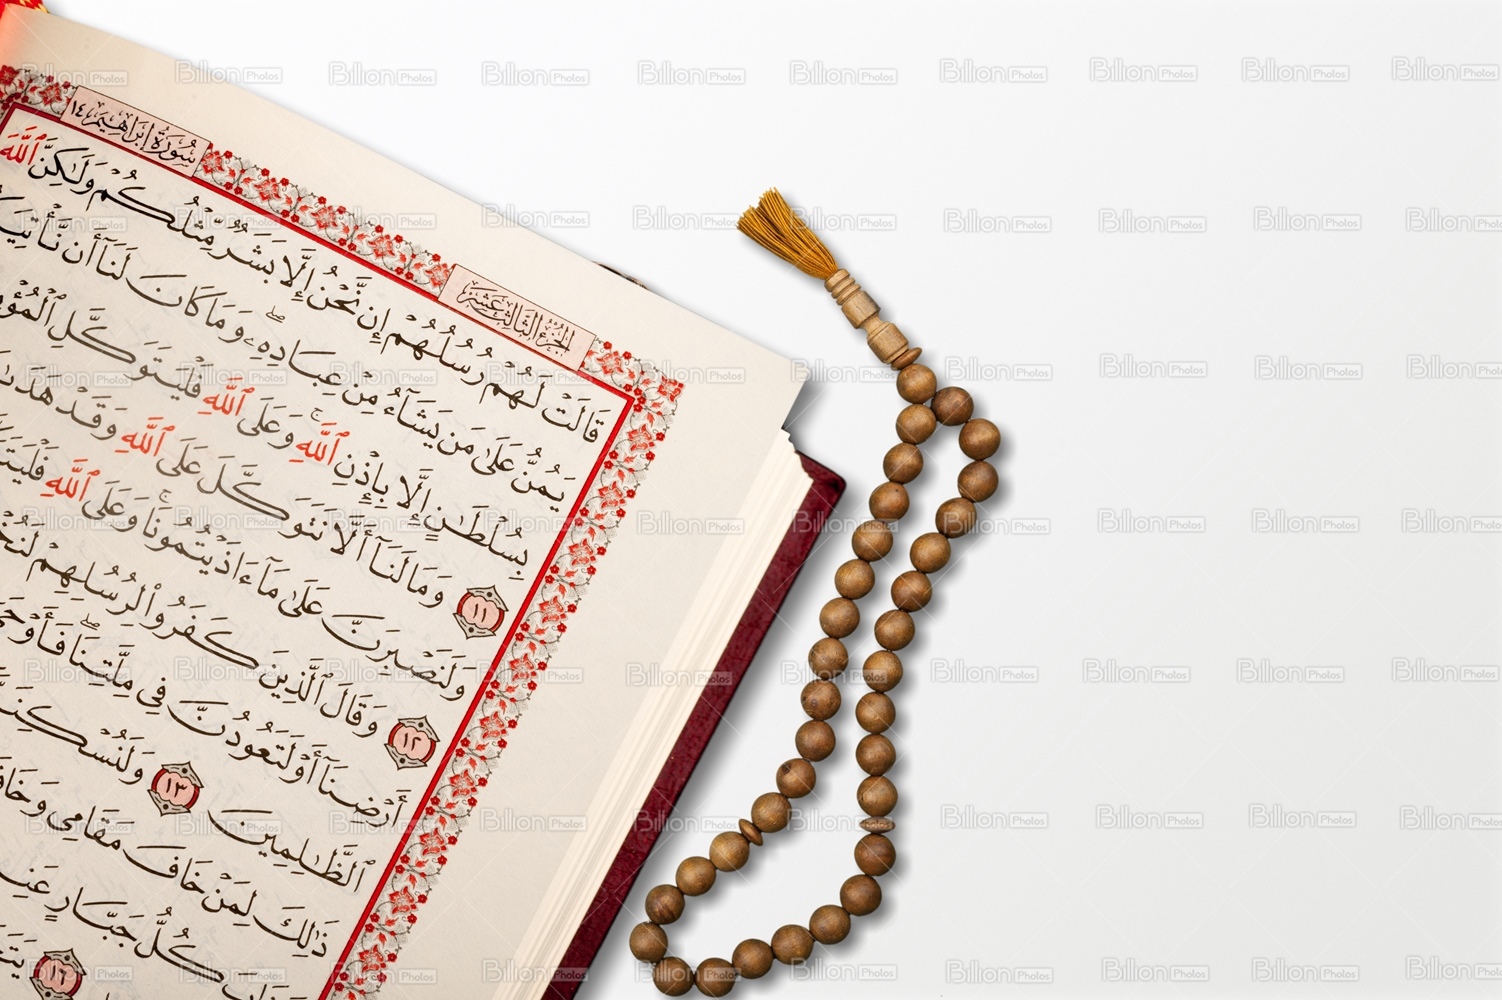 سُورَةُ إِبْرَاهِيمَ ١٤
الجُزْءُ الثَّالِثَ عَشَرَ
قَالَتْ لَهُمْ رُسُلُهُمْ إِن نَّحْنُ إِلَّا بَشَرٌ مِّثْلُكُمْ وَلَٰكِنَّ ٱللَّهَ
يَمُنُّ عَلَىٰ مَن يَشَآءُ مِنْ عِبَادِهِۦ ۖ وَمَا كَانَ لَنَآ أَن نَّأْتِيَ
بِسُلْطَٰنٍ إِلَّا بِإِذْنِ ٱللَّهِ ۚ وَعَلَى ٱللَّهِ فَلْيَتَوَكَّلِ ٱلْمُؤ
١١ وَمَا لَنَآ أَلَّا نَتَوَكَّلَ عَلَى ٱللَّهِ وَقَدْ هَدَىٰ
وَلَنَصْبِرَنَّ عَلَىٰ مَآ ءَاذَيْتُمُونَا ۚ وَعَلَى ٱللَّهِ فَلْيَتَ
١٢ وَقَالَ ٱلَّذِينَ كَفَرُوا۟ لِرُسُلِهِمْ لَنُخْ
أَرْضِنَآ أَوْ لَتَعُودُنَّ فِى مِلَّتِنَا ۖ فَأَوْحَ
ٱلظَّٰلِمِينَ ١٣ وَلَنُسْكِنَ
ذَٰلِكَ لِمَنْ خَافَ مَقَامِى وَخَافَ
كُلُّ جَبَّارٍ عَنِ
١٦ يَتَ
Billion Photos